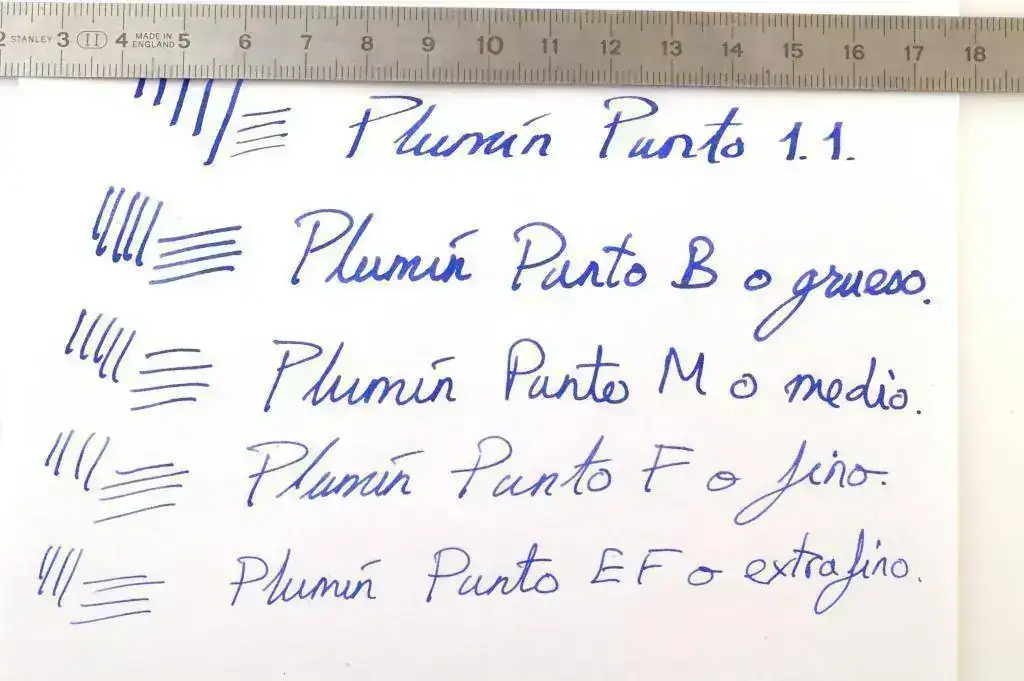 2 STANLEY 3 II 4 MADE IN ENGLAND 5 6 7 8 9 10 11 12 13 14 15 16 17 18
Plumín Punto 1.1.
Plumín Punto B o grueso.
Plumín Punto M o medio.
Plumín Punto F o fino.
Plumín Punto EF o extrafino.